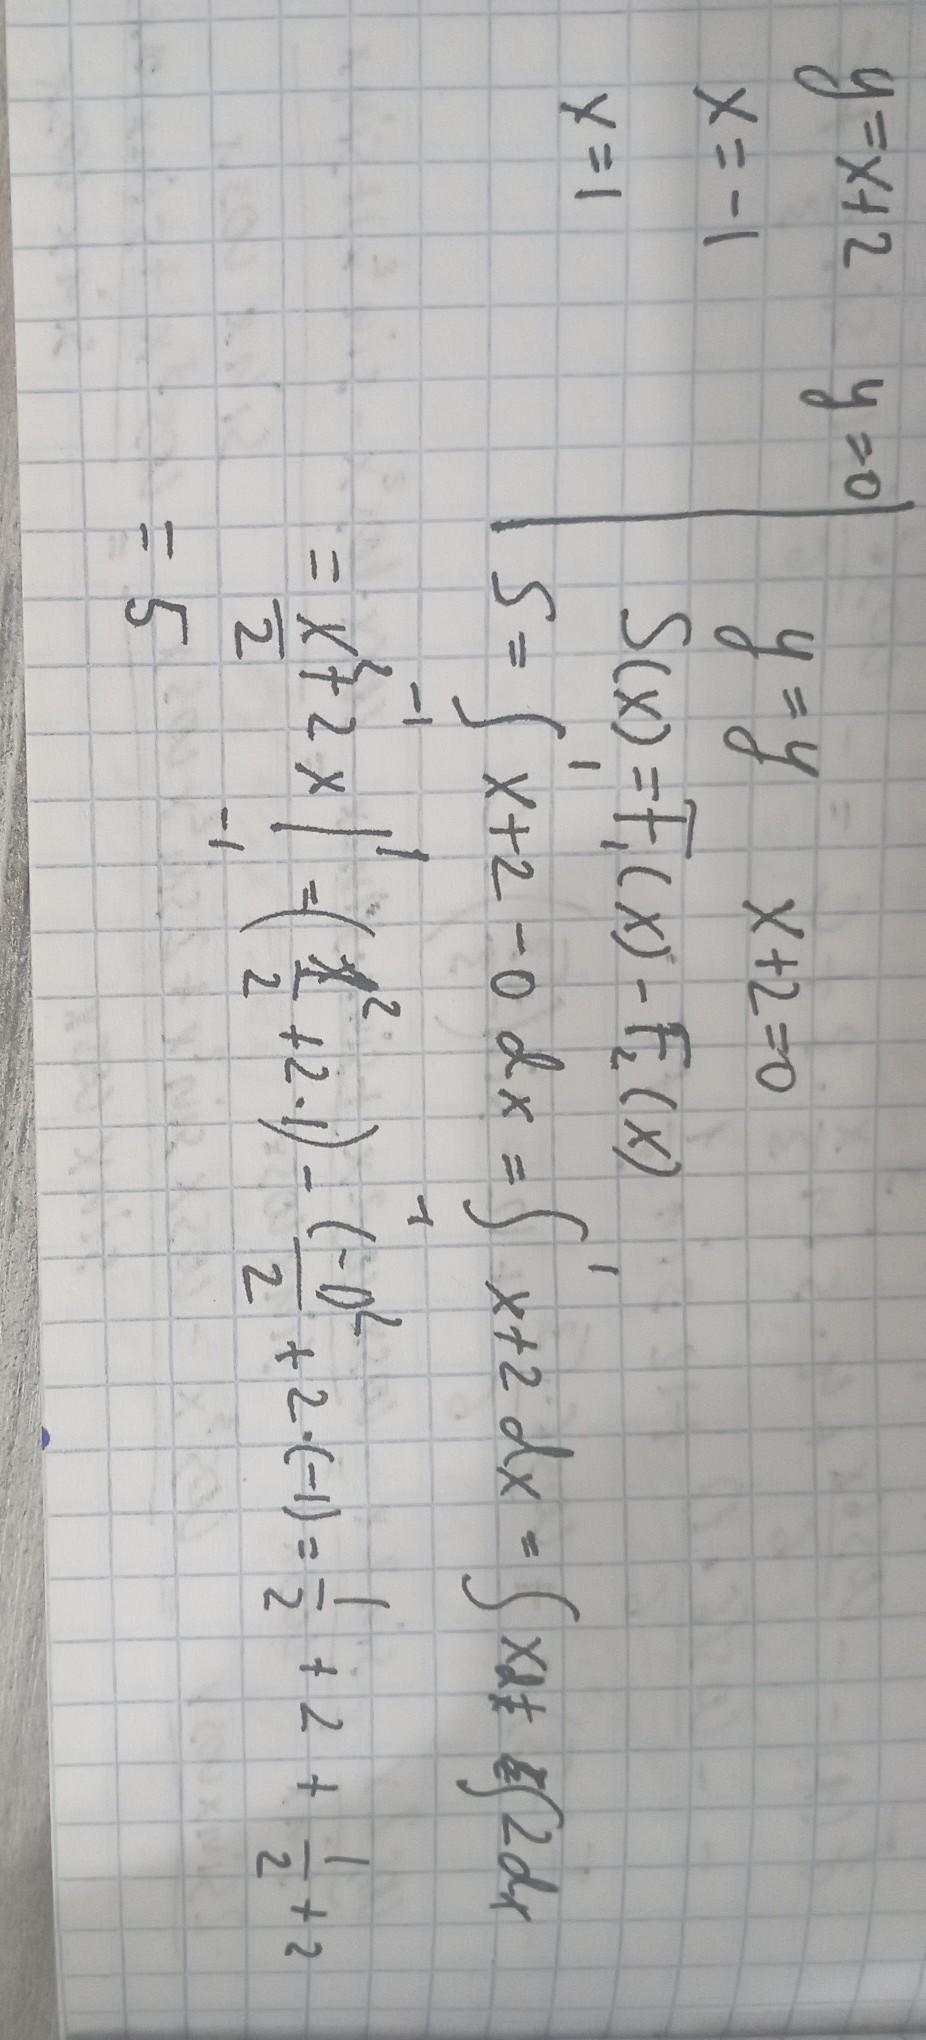 y=x+2 y=0
x=-1
x=1
y=y x+2=0
S(x)=F₁(x)-F₂(x)
S=∫₋₁¹ x+2-0 dx = ∫₋₁¹ x+2 dx = ∫xdx+∫2dx
= x²/2+2x|₋₁¹ =(1²/2+2·1)-(-1)²/2+2·(-1)=1/2+2+1/2+2
=5